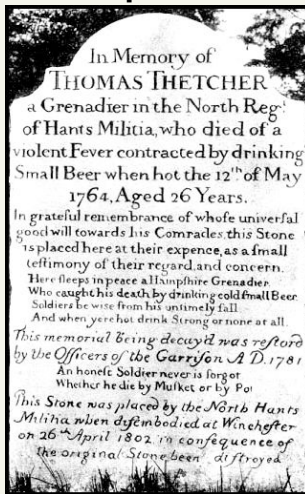 In Memory of
THOMAS THETCHER
a Grenadier in the North Regt.
of Hants Militia, who died of a
violent Fever contracted by drinking
Small Beer when hot the 12th of May
1764, Aged 26 Years.
In grateful remembrance of whose universal
good will towards his Comrades, this Stone
is placed here at their expence, as a small
testimony of their regard and concern.
Here sleeps in peace a Hampshire Grenadier,
Who caught his death by drinking cold small Beer
Soldiers be wise from his untimely fall
And when yere hot drink Strong or none at all.
This memorial being decay'd was restor'd
by the Officers of the Garrison A.D. 1781
An honest Soldier never is forgot
Whether he die by Musket or by Pot
This Stone was placed by the North Hants
Militia when disembodied at Winchester
on 26th April 1802 in consequence of
the original Stone been destroyed